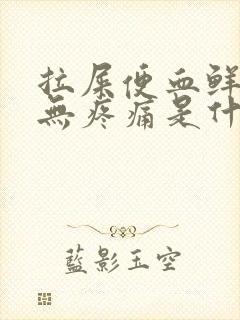 拉屎便血鲜
無疼痛是什
藍影玉空